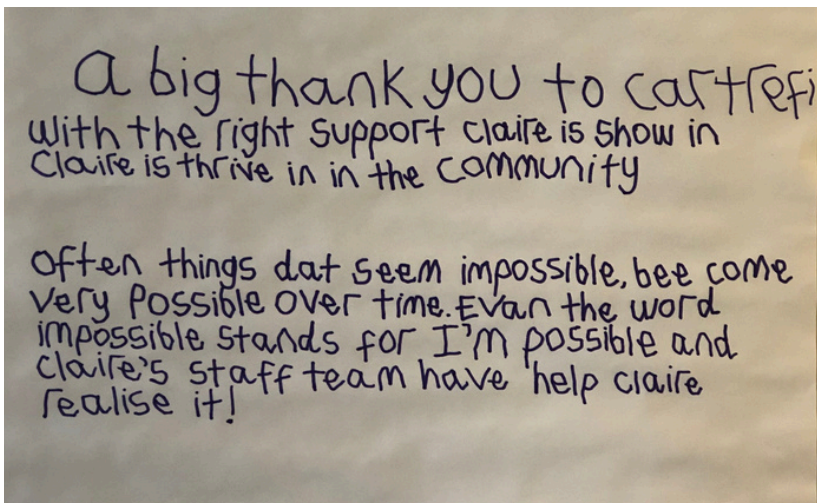 a big thank you to cartrefi
with the right support claire is show in
Claire is thrive in in the community
often things dat seem impossible, bee come
very possible over time. Evan the word
impossible stands for I'm possible and
claire's staff team have help claire
realise it!